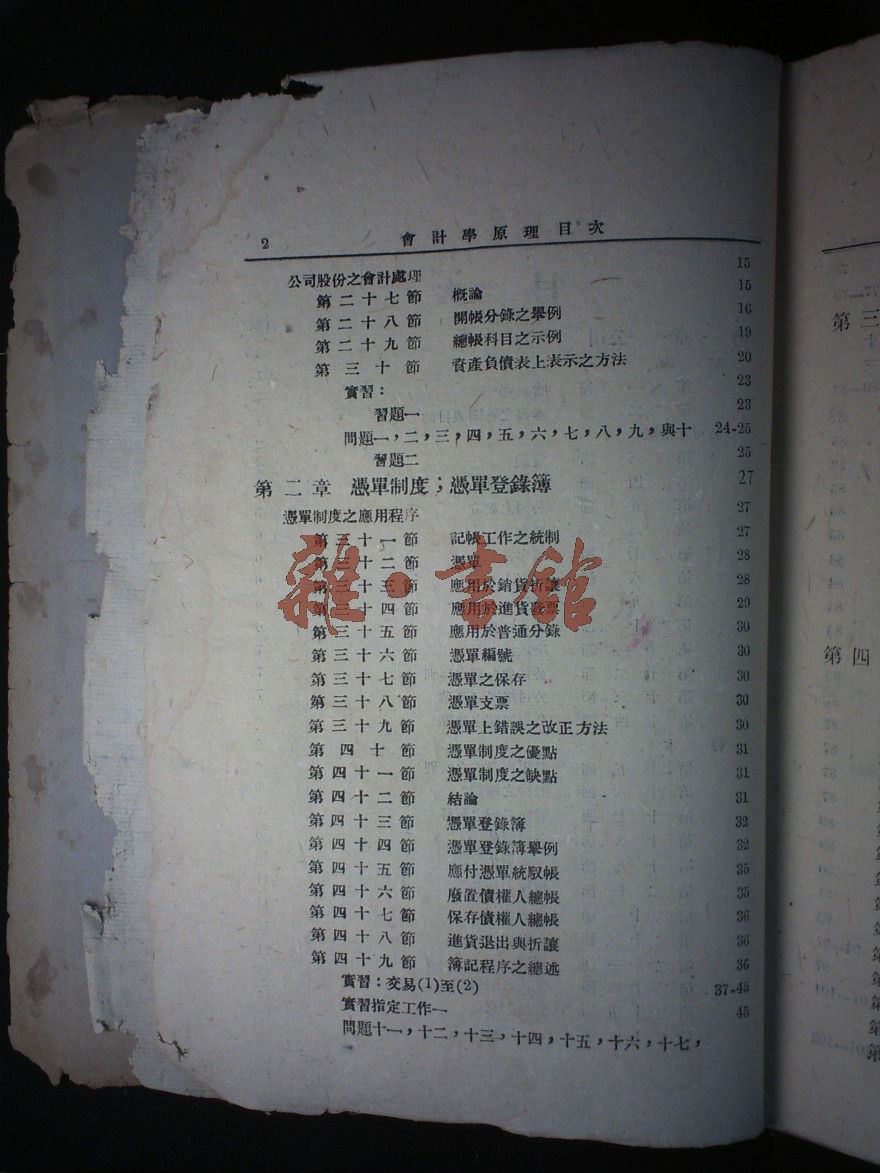 2 會計學原理目次
公司股份之會計處理 15
第二十七節 概論 15
第二十八節 開帳分錄之舉例 16
第二十九節 總帳科目之示例 19
第三十節 資產負債表上表示之方法 20
實習： 23
習題一 23
問題一，二，三，四，五，六，七，八，九，與十 24-25
習題二 25
第二章 憑單制度；憑單登錄簿 27
憑單制度之應用程序 27
第三十一節 記帳工作之統制 27
第三十二節 憑單 28
第三十三節 應用於銷貨折讓 28
第三十四節 應用於進貨發票 29
第三十五節 應用於普通分錄 30
第三十六節 憑單編號 30
第三十七節 憑單之保存 30
第三十八節 憑單支票 30
第三十九節 憑單上錯誤之改正方法 30
第四十節 憑單制度之優點 31
第四十一節 憑單制度之缺點 31
第四十二節 結論 31
第四十三節 憑單登錄簿 32
第四十四節 憑單登錄簿舉例 32
第四十五節 應付憑單統馭帳 35
第四十六節 廢置債權人總帳 35
第四十七節 保存債權人總帳 36
第四十八節 進貨退出與折讓 36
第四十九節 簿記程序之總述 36
實習：交易(1)至(2) 37-45
實習指定工作一 45
問題十一，十二，十三，十四，十五，十六，十七，
雜·書館
第三
第四